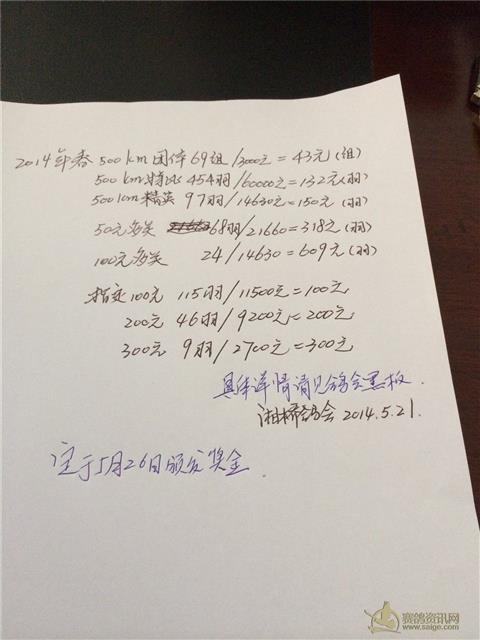 2014年春 500km团体69组/3000元=43元(组)
500km特比 454羽/60000元=132元(羽)
500km精英 97羽/14630元=150元(羽)
50元多关 68羽/21660=318元(羽)
100元多关 24/14630=609元(羽)
指定100元 115羽/11500元=100元
200元 46羽/9200元=200元
300元 9羽/2700元=300元
具体详情请见鸽会黑板.
湘桥鸽会 2014.5.21.
定于5月26日颁发奖金.
赛鸽资讯网
www.saige.com